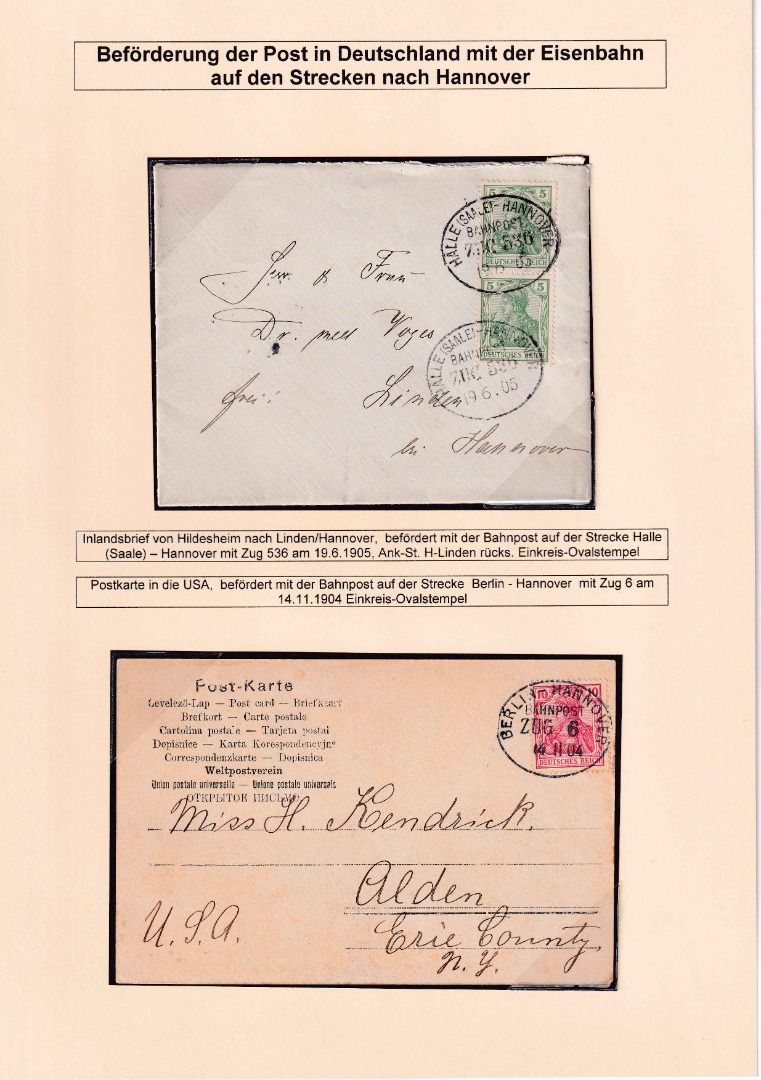 Beförderung der Post in Deutschland mit der Eisenbahn
auf den Strecken nach Hannover
5 5
DEUTSCHES REICH
HALLE (SAALE)-HANNOVER
BAHNPOST
ZUG 536
19 6 05
5 5
DEUTSCHES REICH
HALLE (SAALE)-HANNOVER
BAHNPOST
ZUG 536
19 6. 05
Herr & Frau
Dr. med Voges
frei! Linden
bei Hannover
Inlandsbrief von Hildesheim nach Linden/Hannover, befördert mit der Bahnpost auf der Strecke Halle
(Saale) – Hannover mit Zug 536 am 19.6.1905, Ank-St. H-Linden rücks. Einkreis-Ovalstempel
Postkarte in die USA, befördert mit der Bahnpost auf der Strecke Berlin - Hannover mit Zug 6 am
14.11.1904 Einkreis-Ovalstempel
Post-Karte
Levelező-Lap — Post card — Briefkaart
Brefkort — Carte postale
Cartolina postale — Tarjeta postal
Dopisnice — Karta Korespondencyjna
Correspondenzkarte — Dopisnica
Weltpostverein
Union postale universelle — Unione postale universale
ОТКРЫТОЕ ПИСЬМО
10 10
DEUTSCHES REICH
BERLIN HANNOVER
BAHNPOST
ZUG 6
14 11 04
Miss H. Kendrick.
Alden
U.S.A. Erie County,
N.Y.